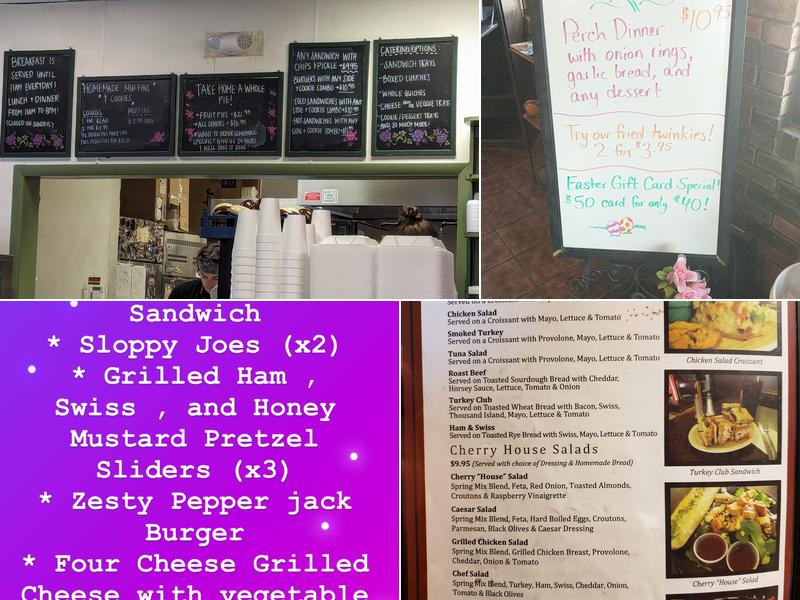 BREAKFAST IS
SERVED UNTIL
11AM EVERYDAY!
LUNCH + DINNER
FROM 11AM TO 8PM!
(CLOSED ON SUNDAYS)
HOMEMADE MUFFINS
& COOKIES
COOKIES
MUFFINS
TAKE HOME A WHOLE
PIE!
• FRUIT PIES - $21.95
ALL OTHERS - $
WANT TO ORDER SOMETHING
SPECIFIC GIVE US 24 HOURS
ANY SANDWICH WITH
CHIPS & PICKLE -$9.95
BURGERS WITH ANY SIDE
& COOKIE COMBO -$10.95
COLD SANDWICHES WITH ANY
SIDE & COOKIE COMBO
HOT SANDWICHES WITH ANY
SIDE & COOKIE COMBO
CATERING OPTIONS:
-SANDWICH TRAYS
-BOXED LUNCHES
-WHOLE QUICHES
-CHEESE AND/OR VEGGIE TRAYS
-COOKIE/DESSERT TRAYS
AND SO MUCH MORE!
$10.95
Perch Dinner
with onion rings,
garlic bread, and
any dessert
Try our fried twinkies!
2 for $3.95
Easter Gift Card Special!
$50 card for only $40!
Sandwich
* Sloppy Joes (x2)
* Grilled Ham ,
Swiss , and Honey
Mustard Pretzel
Sliders (x3)
* Zesty Pepper jack
Burger
* Four Cheese Grilled
Cheese with vegetable
Served on a Croissant
Chicken Salad
Served on a Croissant with Mayo, Lettuce & Tomato
Smoked Turkey
Served on a Croissant with Provolone, Mayo, Lettuce & Tomato
Tuna Salad
Served on a Croissant with Provolone, Mayo, Lettuce & Tomato
Roast Beef
Served on Toasted Sourdough Bread with Cheddar,
Horsey Sauce, Lettuce, Tomato & Onion
Turkey Club
Served on Toasted Wheat Bread with Bacon, Swiss,
Thousand Island, Mayo, Lettuce & Tomato
Ham & Swiss
Served on Toasted Rye Bread with Swiss, Mayo, Lettuce & Tomato
Cherry House Salads
$9.95 (Served with choice of Dressing & Homemade Bread)
Cherry "House" Salad
Spring Mix Blend, Feta, Red Onion, Toasted Almonds,
Croutons & Raspberry Vinaigrette
Caesar Salad
Spring Mix Blend, Feta, Hard Boiled Eggs, Croutons,
Parmesan, Black Olives & Caesar Dressing
Grilled Chicken Salad
Spring Mix Blend, Grilled Chicken Breast, Provolone,
Cheddar, Onion & Tomato
Chef Salad
Spring Mix Blend, Turkey, Ham, Swiss, Cheddar, Onion,
Tomato & Black Olives
Chicken Salad Croissant
Turkey Club Sandwich
Cherry "House" Salad